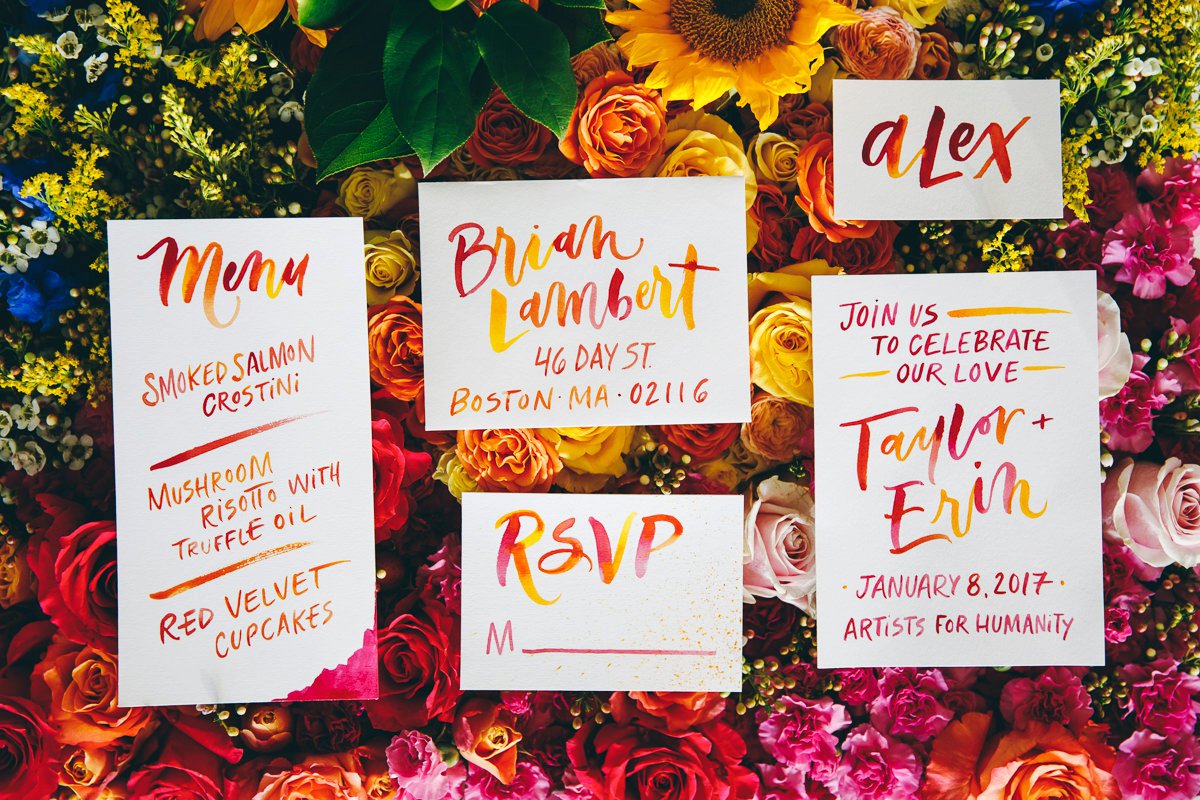 Menu
SMOKED SALMON
CROSTINI
MUSHROOM
RISOTTO WITH
TRUFFLE OIL
RED VELVET
CUPCAKES
Brian
Lambert
46 DAY ST.
BOSTON · MA · 02116
RSVP
M
aLex
JOIN US
TO CELEBRATE
OUR LOVE
Taylor +
Erin
· JANUARY 8, 2017 ·
ARTISTS FOR HUMANITY